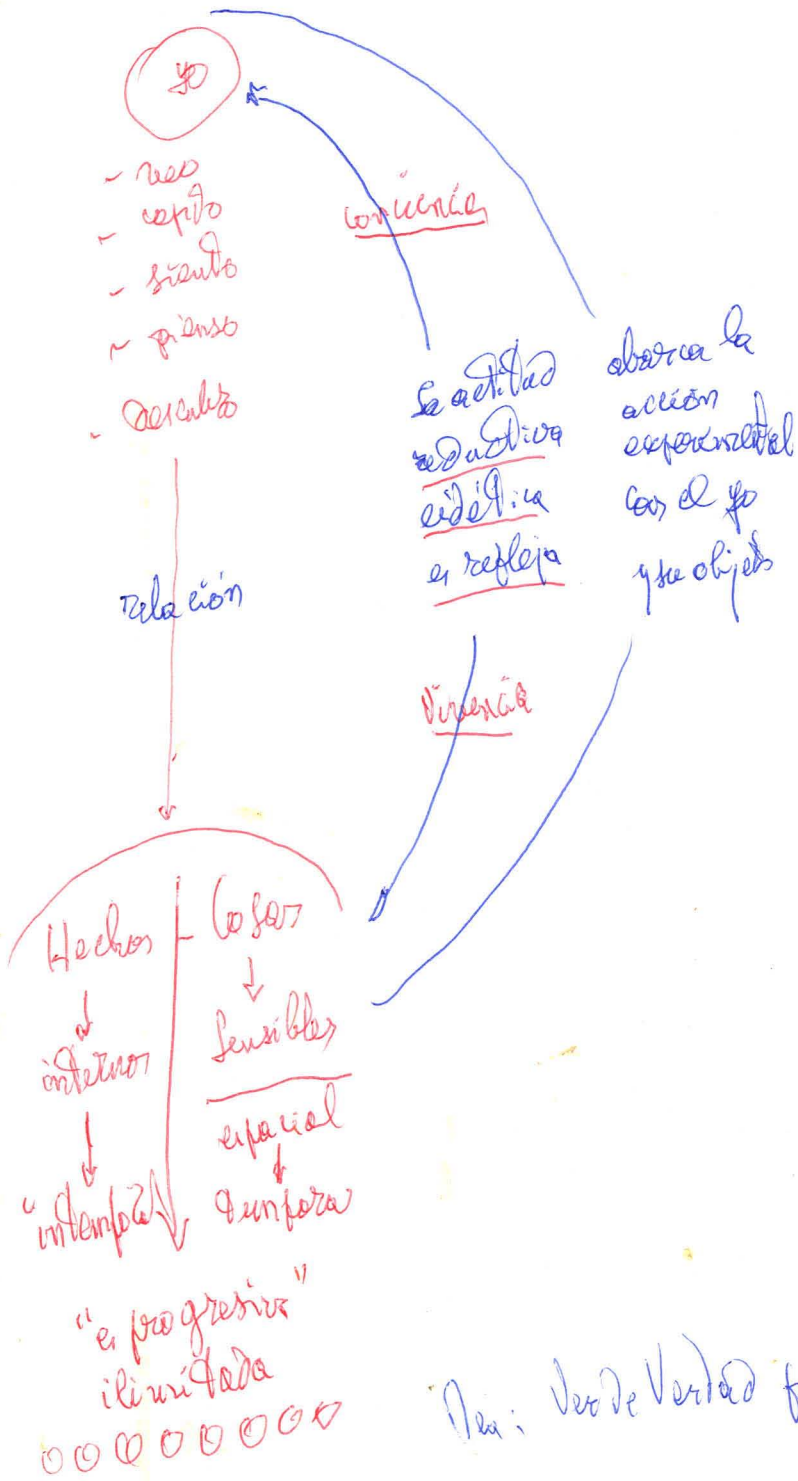 yo
- veo
- capto
- siento
- pienso
- Descubro
conciencia
relación
La actitud
reductiva
eidética
es refleja
abarca la
acción
experimental
con el yo
y su objeto
Vivencia
Hechos - Cosas
internos
Sensibles
espacial
"intemporal
tempora
"es progresiva"
ilimitada
Ver de Verdad